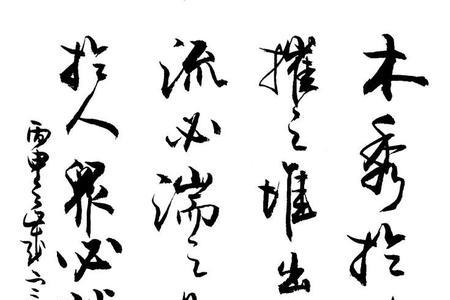 木秀於
摧之堆出
流必湍之
於人眾必
丙申之歲